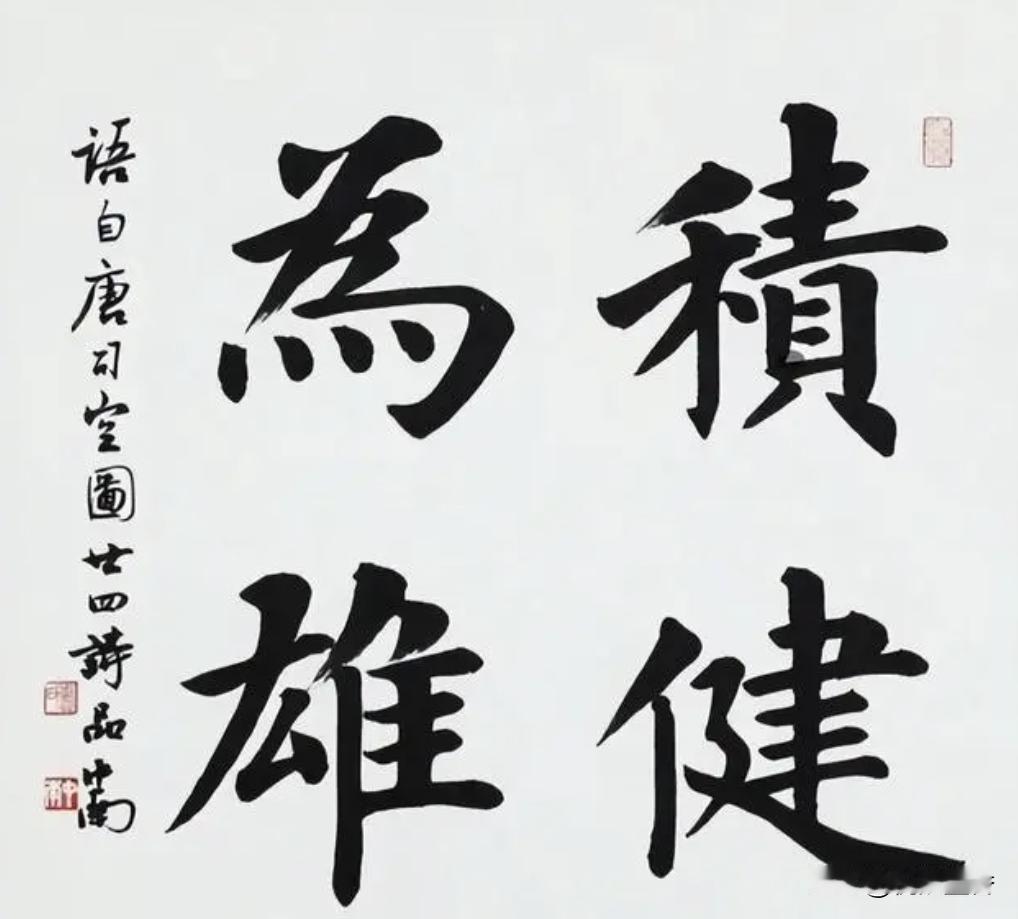 積健
為雄
語自唐司空圖廿四詩品中南